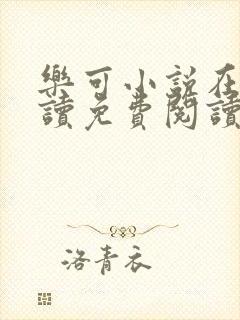 樂可小說在
讀免費閱讀
洛青衣